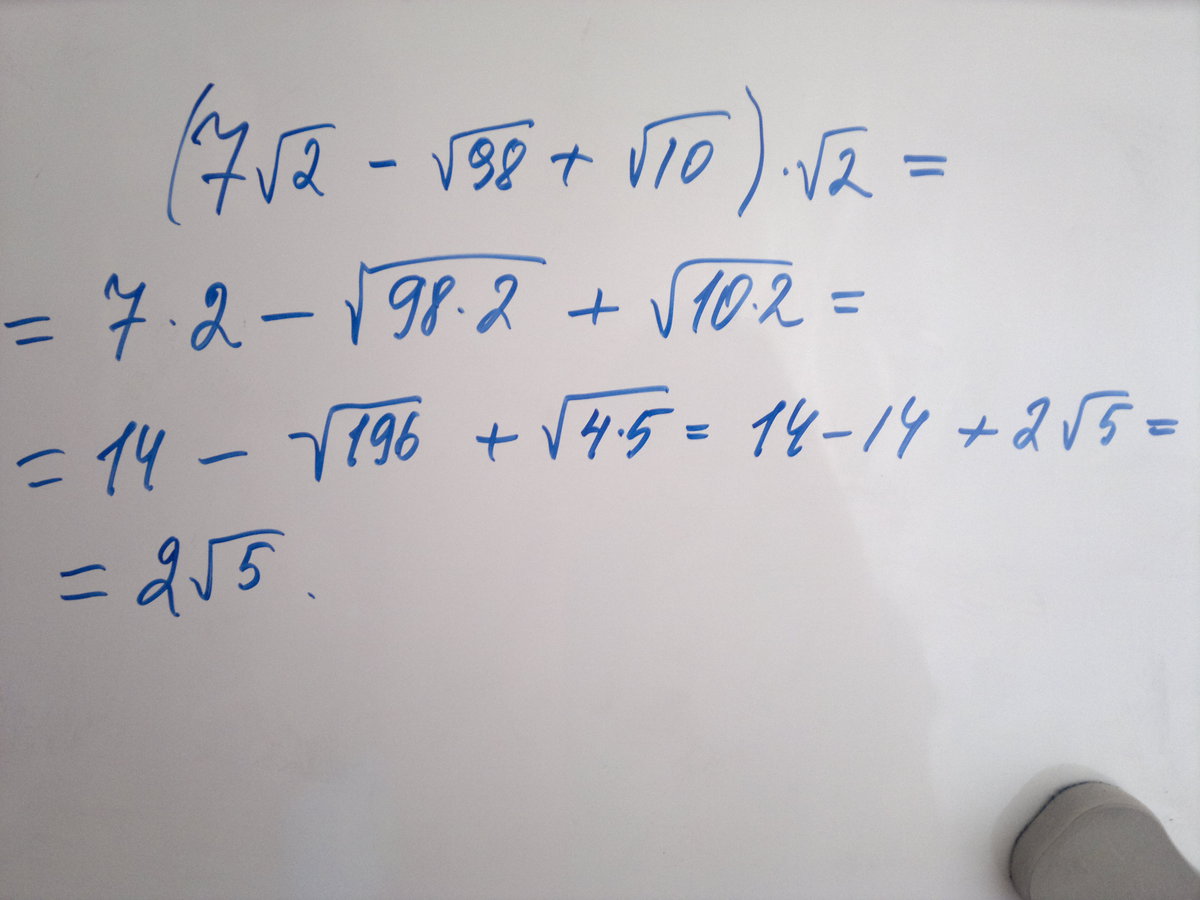 (7√2 - √98 + √10) · √2 =
= 7 · 2 - √98·2 + √10·2 =
= 14 - √196 + √4·5 = 14 - 14 + 2√5 =
= 2√5 .